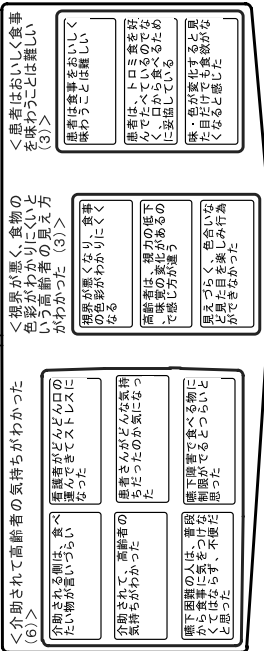 ＜介助されて高齢者の気持ちがわかった
(6)＞
介助される側は、食べ
たい物が言いづらい
看護者がどんどん口の
運んできてストレスに
なった
介助されて、高齢者の
気持ちがわかった
患者さんがどんな気持
ちだったのか気になっ
た
嚥下困難の人は、普段
から食事に気をつけな
くてはならず、不便だ
と思った
嚥下障害で食べる物に
制限がでるとつらいと
思った
＜視界が悪く、食物の
色彩がわかりにくいと
いう高齢者の見え方
がわかった（3）＞
視界が悪くなり、食事
の色彩がわかりにくく
なる
高齢者は、視力の低下
、味覚の変化があるの
で感じ方が違う
見えづらく、色合いな
ど見た目を楽しみ行為
ができなかった
＜患者はおいしく食事
を味わうことは難しい
(3)＞
患者は食事をおいしく
味わうことは難しい
患者は、トロミ食を好
んでたべているのでな
く、口から食べるため
に妥協している
味・色が変化すると見
た目だけでも食欲がな
くなると感じた